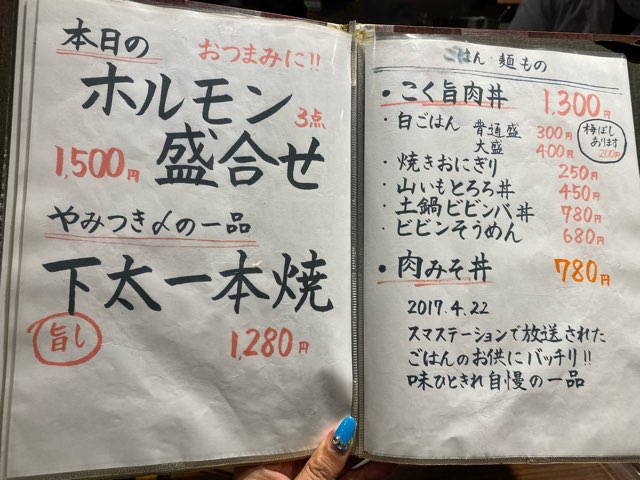 本日の
おつまみに!!
ホルモン
3点
盛合せ
1,500円
やみつき〆の一品
下太一本焼
旨し
1,280円
ごはん・麺もの
・こく旨肉丼 1,300円
・白ごはん 普通盛 300円
大盛 400円
梅ぼし
あります
200円
・焼きおにぎり 250円
・山いもとろろ丼 450円
・土鍋ビビンバ丼 780円
・ビビンそうめん 680円
・肉みそ丼 780円
2017.4.22
スマステーションで放送された
ごはんのお供にバッチリ!!
味ひときれ自慢の一品